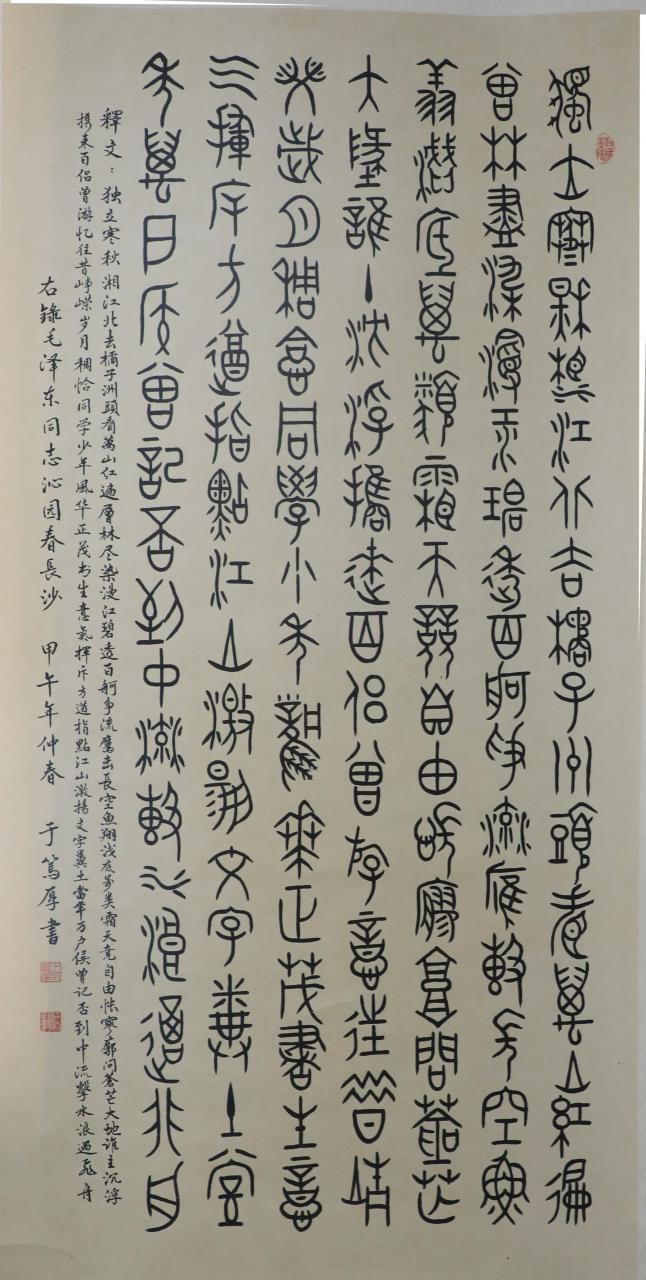 獨立寒秋湘江北去橘子州頭看萬山紅徧
曾林盡染漫江碧透百舸爭流鷹擊長空魚
翔淺底萬類霜天競自由悵寥廓問蒼芒
大地誰主沈浮攜來百侶曾游憶往昔崢
嶸歲月稠恰同學少年風華正茂書生意
气揮斥方遒指點江山激揚文字糞土當
年萬户侯曾記否到中流擊水浪遏飛舟
釋文：独立寒秋湘江北去橘子洲頭看萬山红遍層林尽染漫江碧透百舸争流鷹击長空魚翔浅底萬类霜天竞自由怅寥廓问蒼芒大地谁主沉浮
携来百侣曾游忆往昔峥嵘岁月稠恰同学少年風华正茂书生意氣揮斥方遒指點江山激揚文字糞土當年万户侯曾记否到中流擊水浪遏飛舟
右錄毛泽东同志沁园春長沙 甲午年仲春 于篤厚書